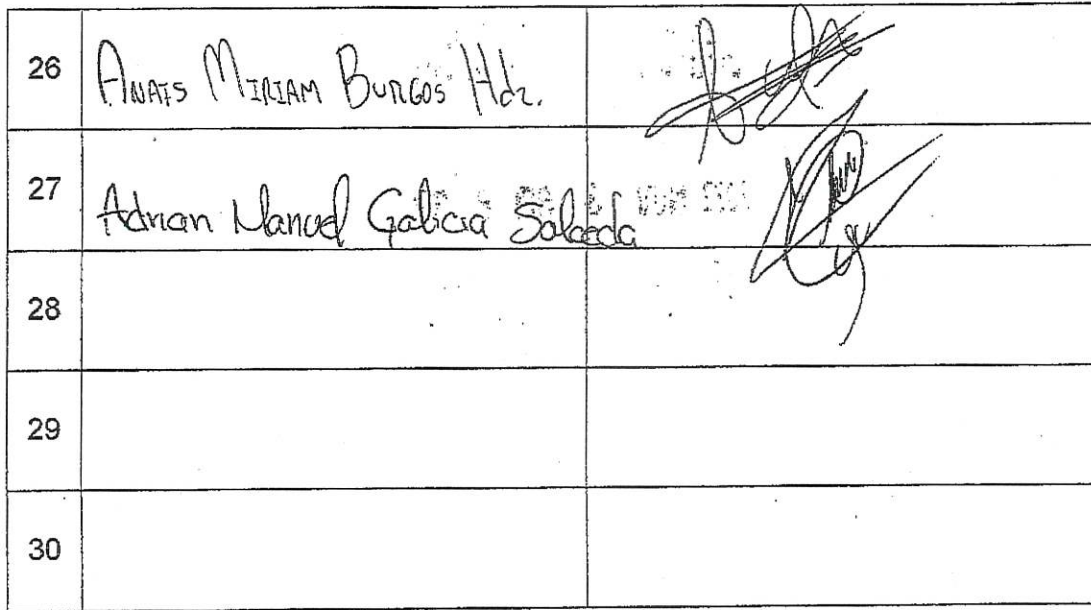 26 Anais Miriam Burgos Hdz.
27 Adrian Manuel Galicia Salceda
28
29
30